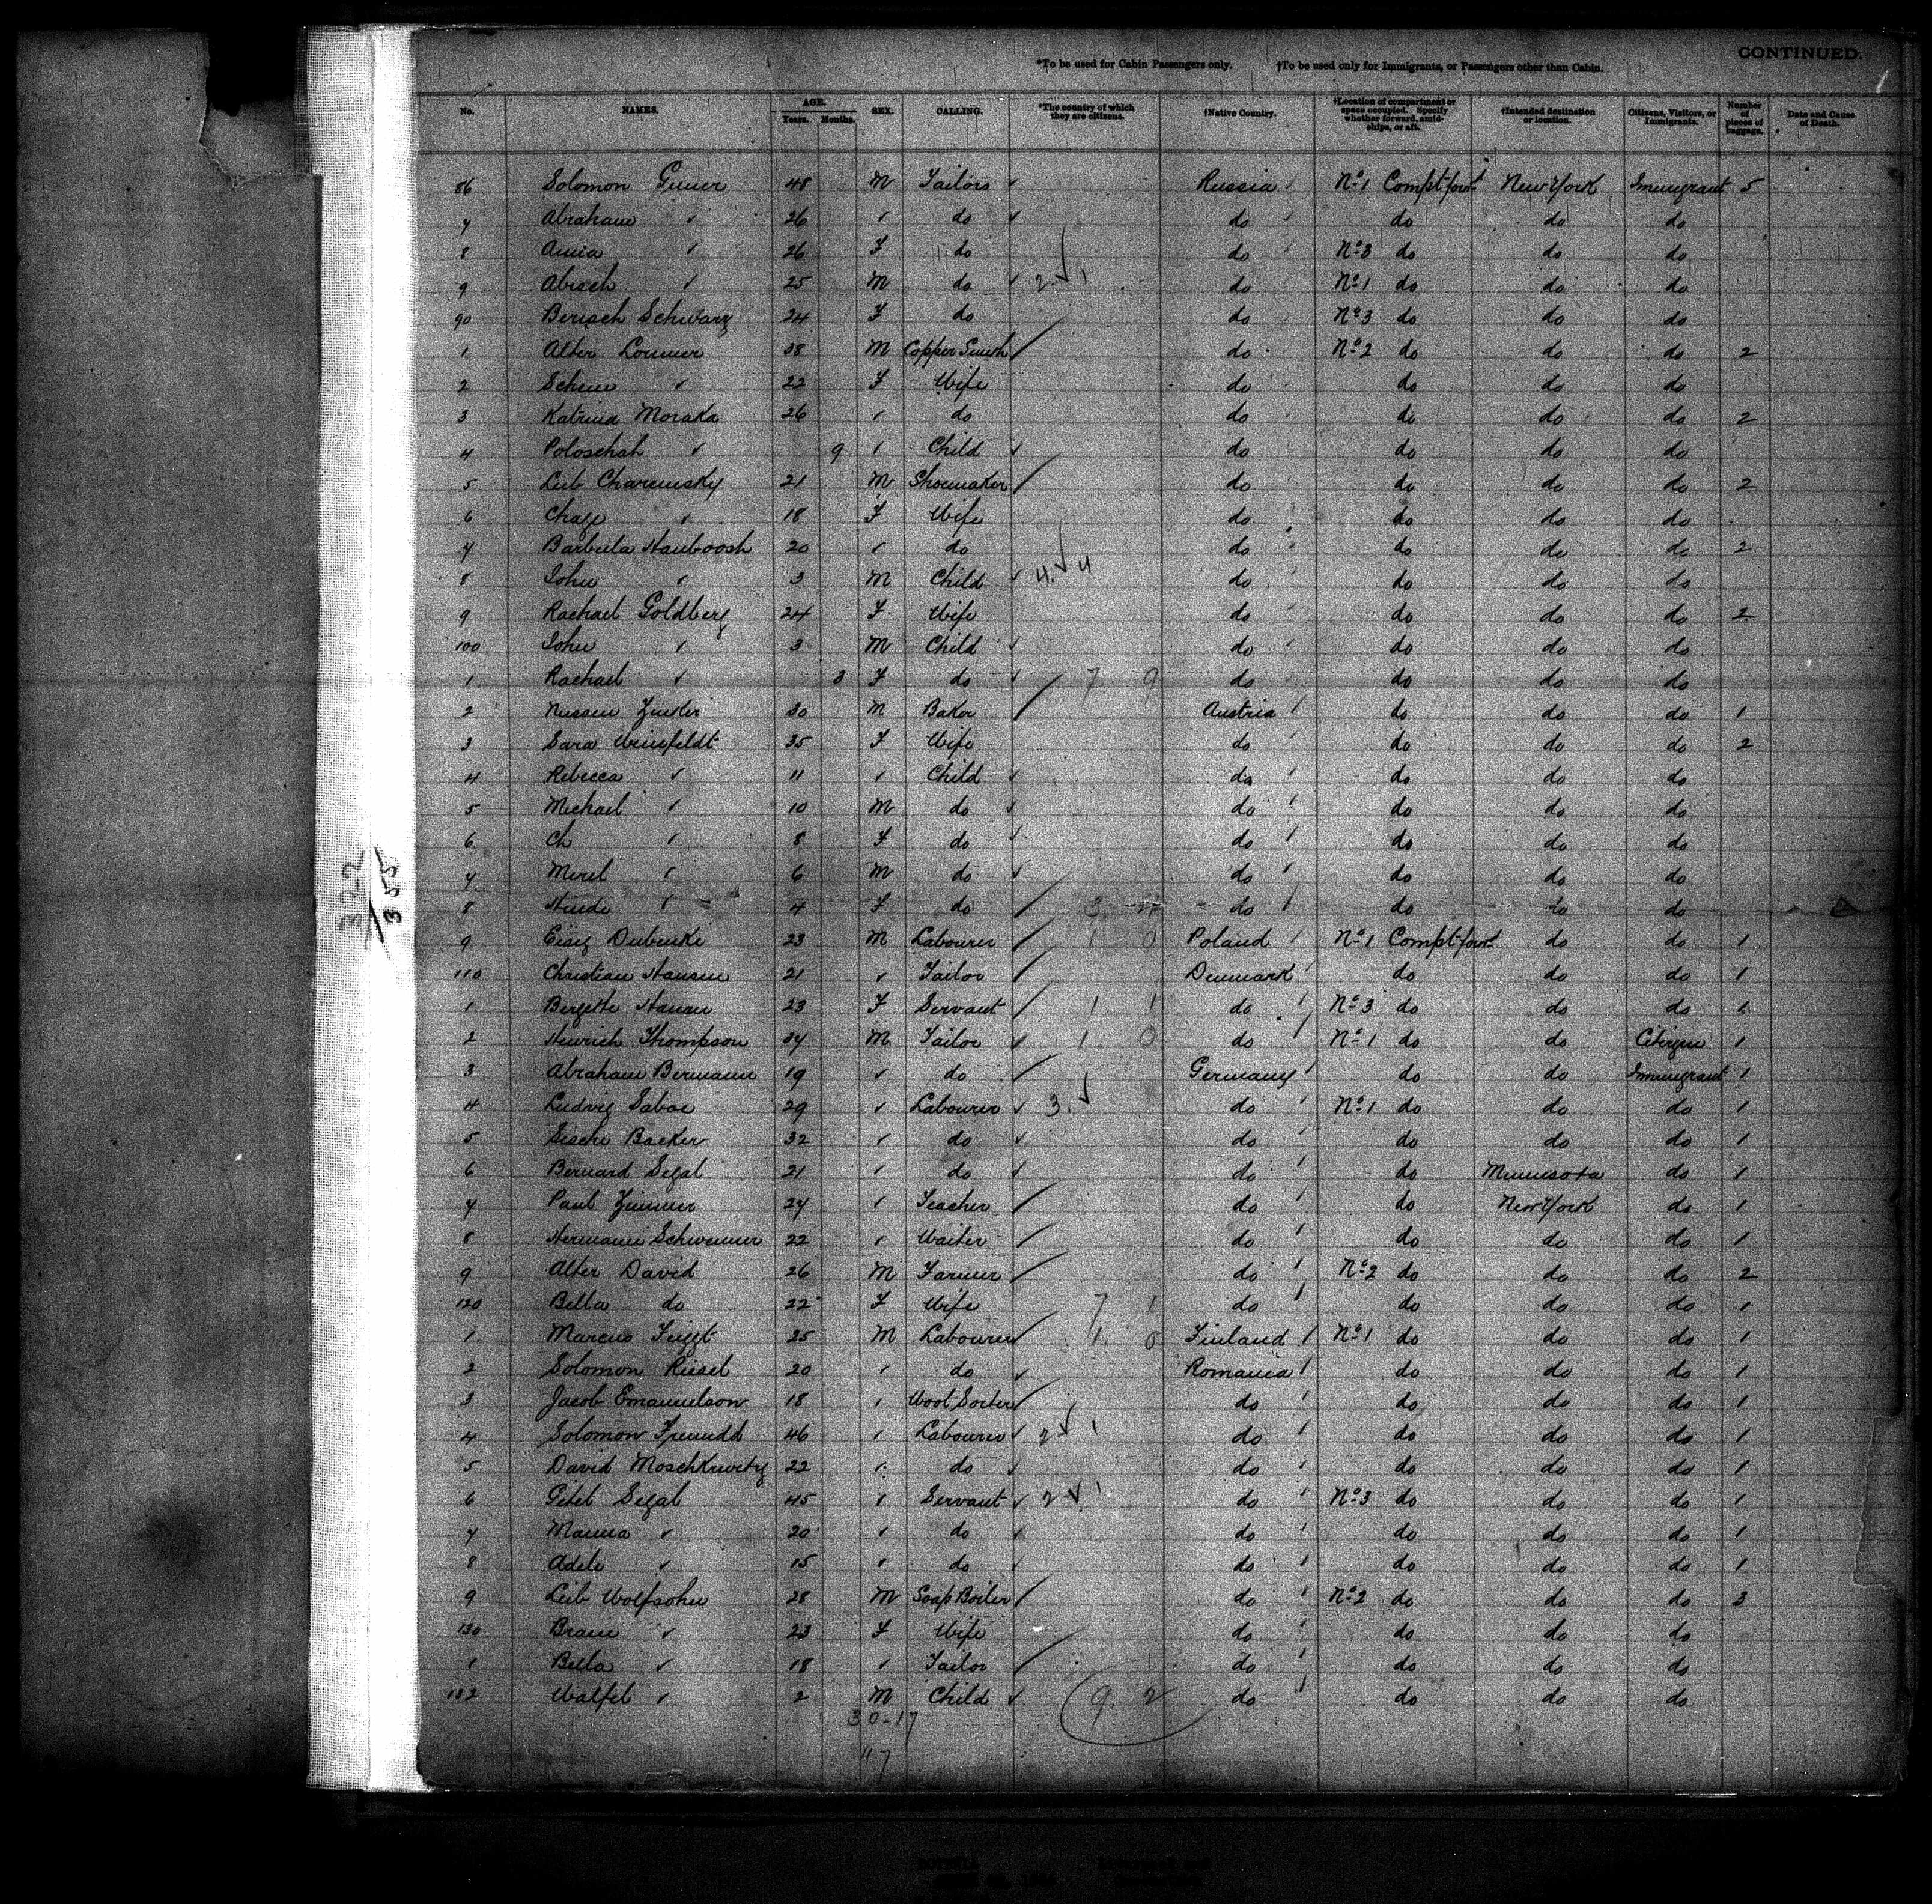 CONTINUED.
*To be used for Cabin Passengers only. †To be used only for Immigrants, or Passengers other than Cabin.
No. NAMES. AGE. Years. Months. SEX. CALLING. *The country of which they are citizens. †Native Country. †Location of compartment or space occupied. Specify whether forward, amidships, or aft. †Intended destination or location. Citizens, Visitors, or Immigrants. Number of pieces of baggage. Date and Cause of Death.
86 Solomon 48 M Tailors Russia No 1 Compt forwd New York Immigrant 5
7 Abraham " 26 " do do do do do
8 " 26 F do do No 3 do do do
9 Abisch " 25 M do 2 1 do No 1 do do do
90 Berisch Schwarz 24 F do do No 3 do do do
1 Alter 38 M Copper Smith do No 2 do do do 2
2 " 22 F Wife do do do do
3 Katrina Moraka 26 " do do do do do 2
4 Poloschah " 9 " Child do do do do
5 Leib Charemsky 21 M Shoemaker do do do do 2
6 Chaje " 18 F Wife do do do do
7 20 " do do do do do 2
8 John " 3 M Child 4 4 do do do do
9 Rachael Goldberg 24 F Wife do do do do 2
100 John " 3 M Child do do do do
1 Rachael " 3 F do 7 9 do do do do
2 30 M Baker Austria do do do 1
3 Sara Weinfeldt 35 F Wife do do do do 2
4 Rebecca " 11 " Child do do do do
5 Michael " 10 M do do do do do
6 Ch " 8 F do do do do do
7 Merel " 6 M do do do do do
8 Hinde " 4 F do 3 do do do do
9 Eisig Dubinki 23 M Labourer 1 0 Poland No 1 Compt forwd do do 1
110 Christian Hansen 21 " Tailor Denmark do do do 1
1 Bergette Hansen 23 F Servant 1 1 do No 3 do do do
2 Heinrich Thompson M Tailor 1 0 do No 1 do do Citizen 1
3 Abraham Bermann 19 " do Germany do do Immigrant 1
4 Ludvig Saboe 29 " Labourer 3 do No 1 do do do 1
5 Backer 32 " do do do do do 1
6 Bernard Segal 21 " do do do Minnesota do 1
7 Paul Zimmer 27 " Teacher do do New York do 1
8 Hermann Schwemmer 22 " Waiter do do do do 1
9 Alter David 26 M Farmer do No 2 do do do 2
120 Bella do 22 F Wife 7 1 do do do do 1
1 Marcus 25 M Labourer 1 0 Finland No 1 do do do 1
2 Solomon Riesel 20 " do Romania do do do 1
3 Jacob Emanuelson 18 " Wool Sorter do do do do 1
4 Solomon 46 " Labourer 2 1 do do do do 1
5 David 22 " do do do do do 1
6 Petel Segal 45 " Servant 2 1 do No 3 do do do 1
7 " 20 " do do do do do 1
8 Adele " 15 " do do do do do 1
9 Leib Wolfsohn 28 M Soap Boiler do No 2 do do do 3
130 " 23 F Wife do do do do
1 Bella " 18 " Tailor do do do do
132 " 2 M Child 9. 2 do do do do
30-17
117
322
355